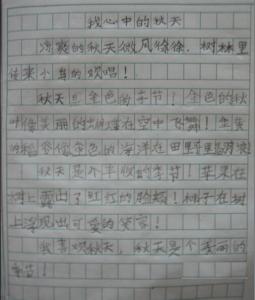 我心中的秋天
凉爽的秋天微风徐徐，树林里
传来小鸟的欢唱！
秋天是金色的季节！金色的秋
叶像美丽的蝴蝶在空中飞舞！金黄
的稻谷像金色的海洋在田野里
秋天是个丰收的季节！苹果在
树上露出了红红的脸颊！柿子在树
上浮现出可爱的笑容！
我喜欢秋天，秋天是个美丽的
季节！